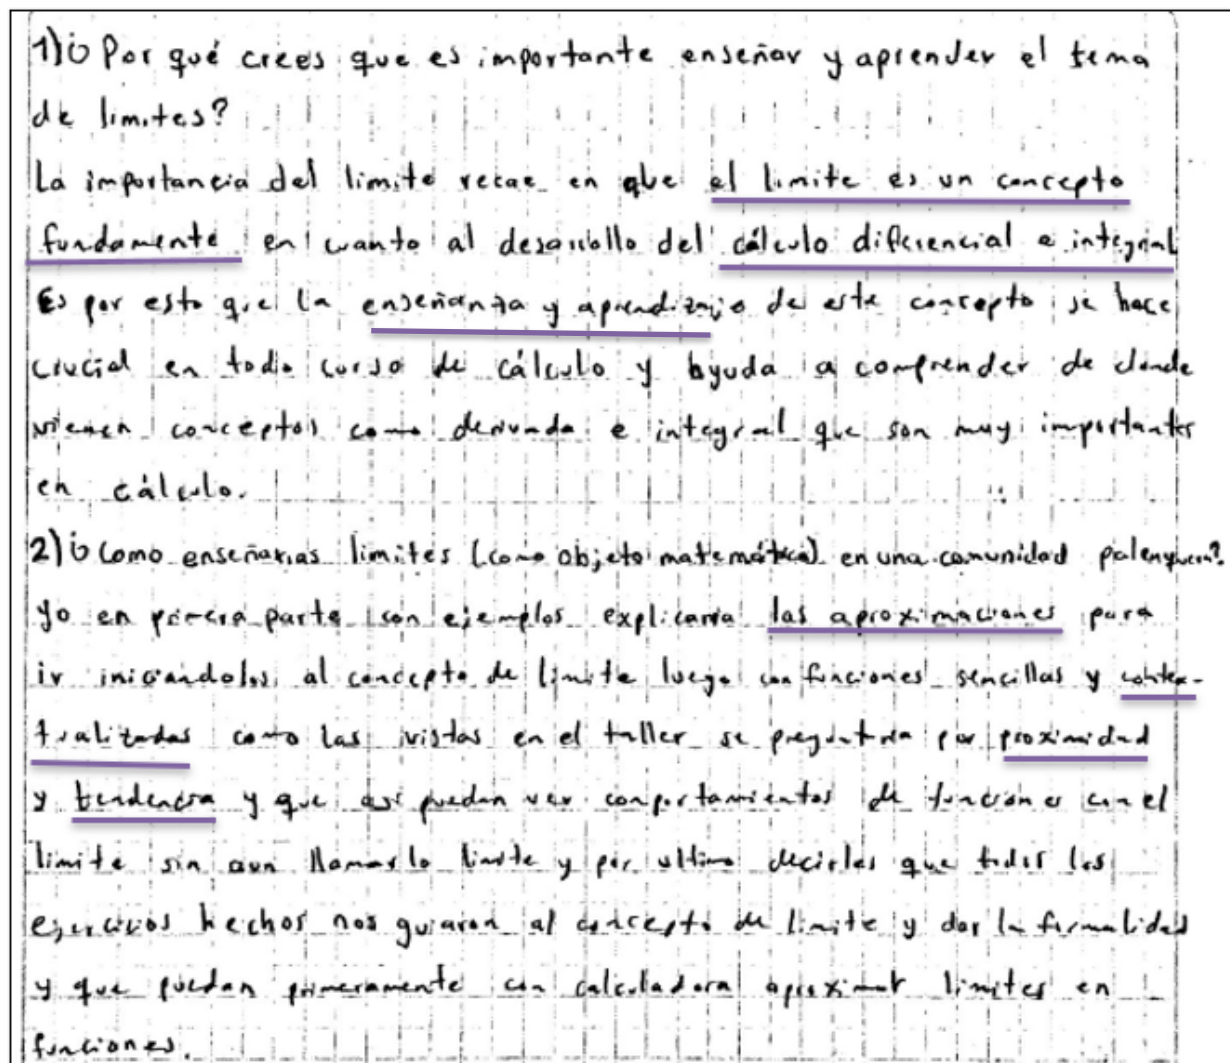 1)¿Por qué crees que es importante enseñar y aprender el tema
de limites?
La importancia del limite recae en que el limite es un concepto
fundamente en cuanto al desarrollo del cálculo diferencial e integral
Es por esto que la enseñanza y aprendizaje de este concepto se hace
crucial en todo curso de cálculo y ayuda a comprender de donde
vienen conceptos como derivada e integral que son muy importantes
en cálculo.
2)¿Como enseñarias limites (como objeto matemático) en una comunidad palenquera?
Yo en primera parte con ejemplos explicaria las aproximaciones para
ir iniciandolos al concepto de limite luego con funciones sencillas y contex-
tualizadas como las vistas en el taller se preguntaria por proximidad
y tendencia y que asi puedan ver comportamientos de funciones con el
limite sin aun llamarlo limite y por ultimo decirles que todos los
ejercicios hechos nos guiaron al concepto de limite y dar la formalidad
y que puedan primeramente con calculadora aproximar limites en
funciones.